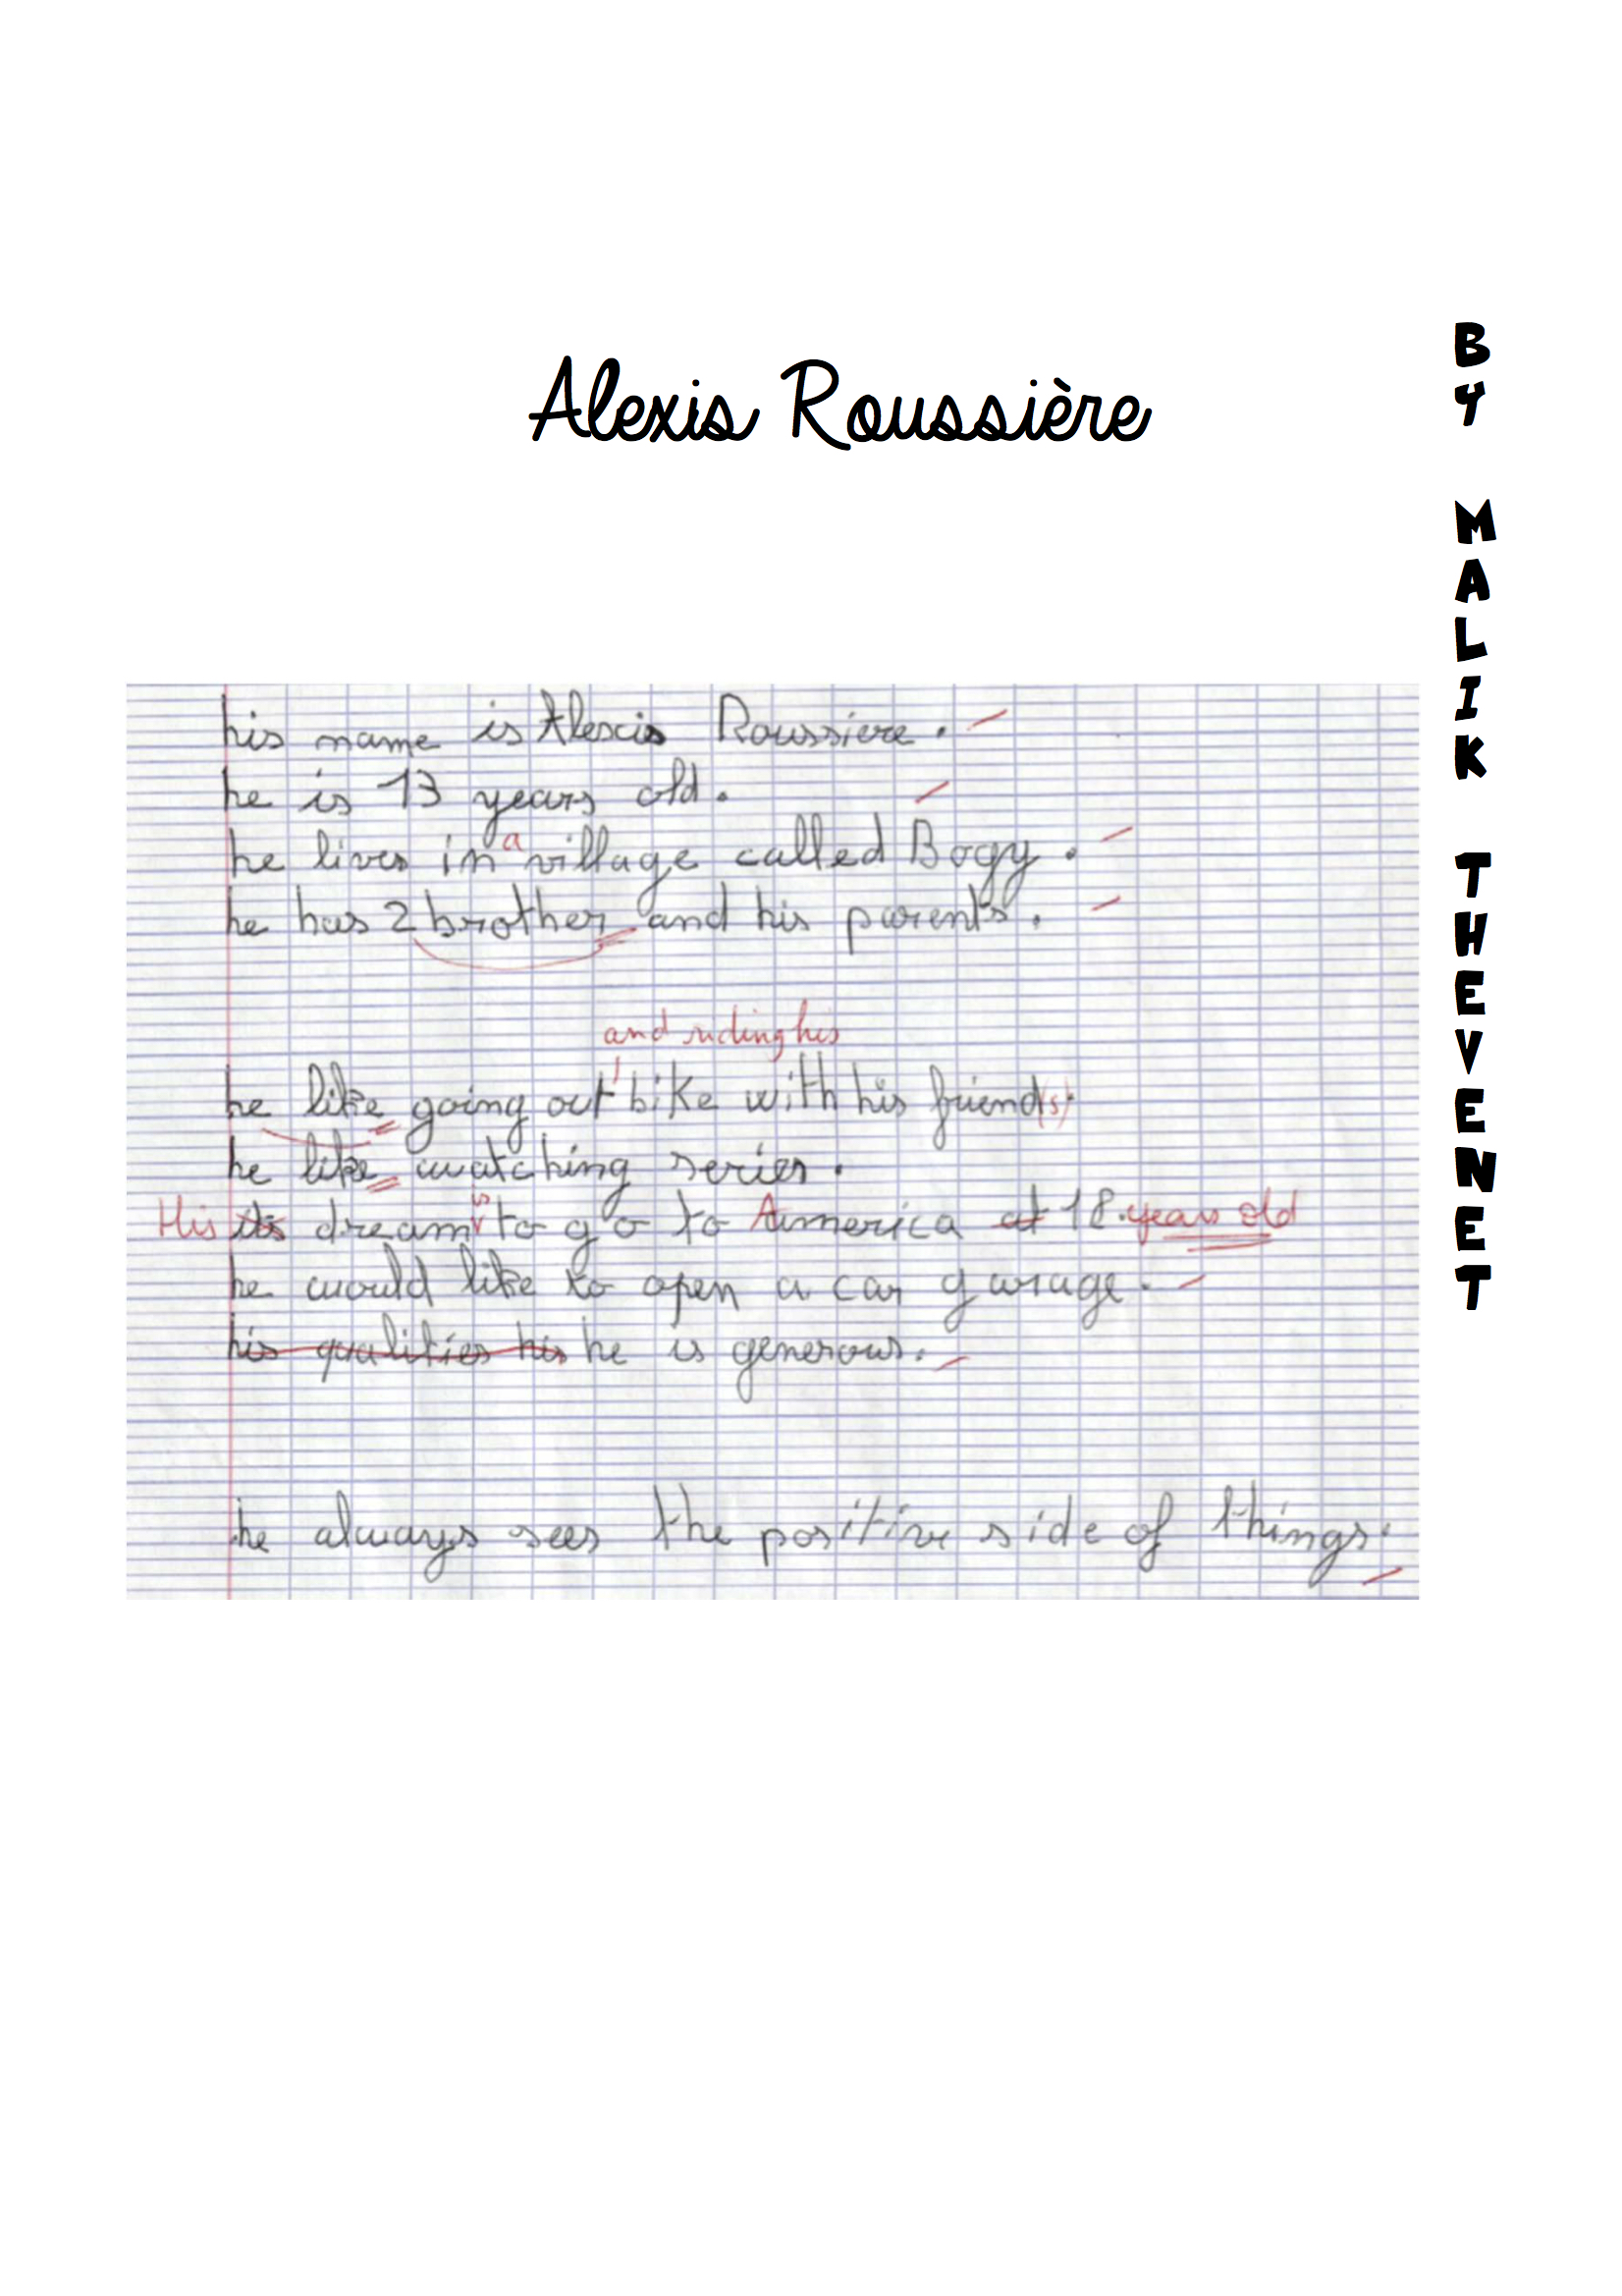 Alexis Roussière
BY MALIK THEVENET
his name is Alexis Roussiere.
he is 13 years old.
he lives in a village called Bogy.
he has 2 brother and his parents.
and riding his
he like going out bike with his friend(s).
he like watching series.
His its dream is to go to America at 18. years old
he would like to open a car garage.
his qualities his he is generous.
he always sees the positive side of things.